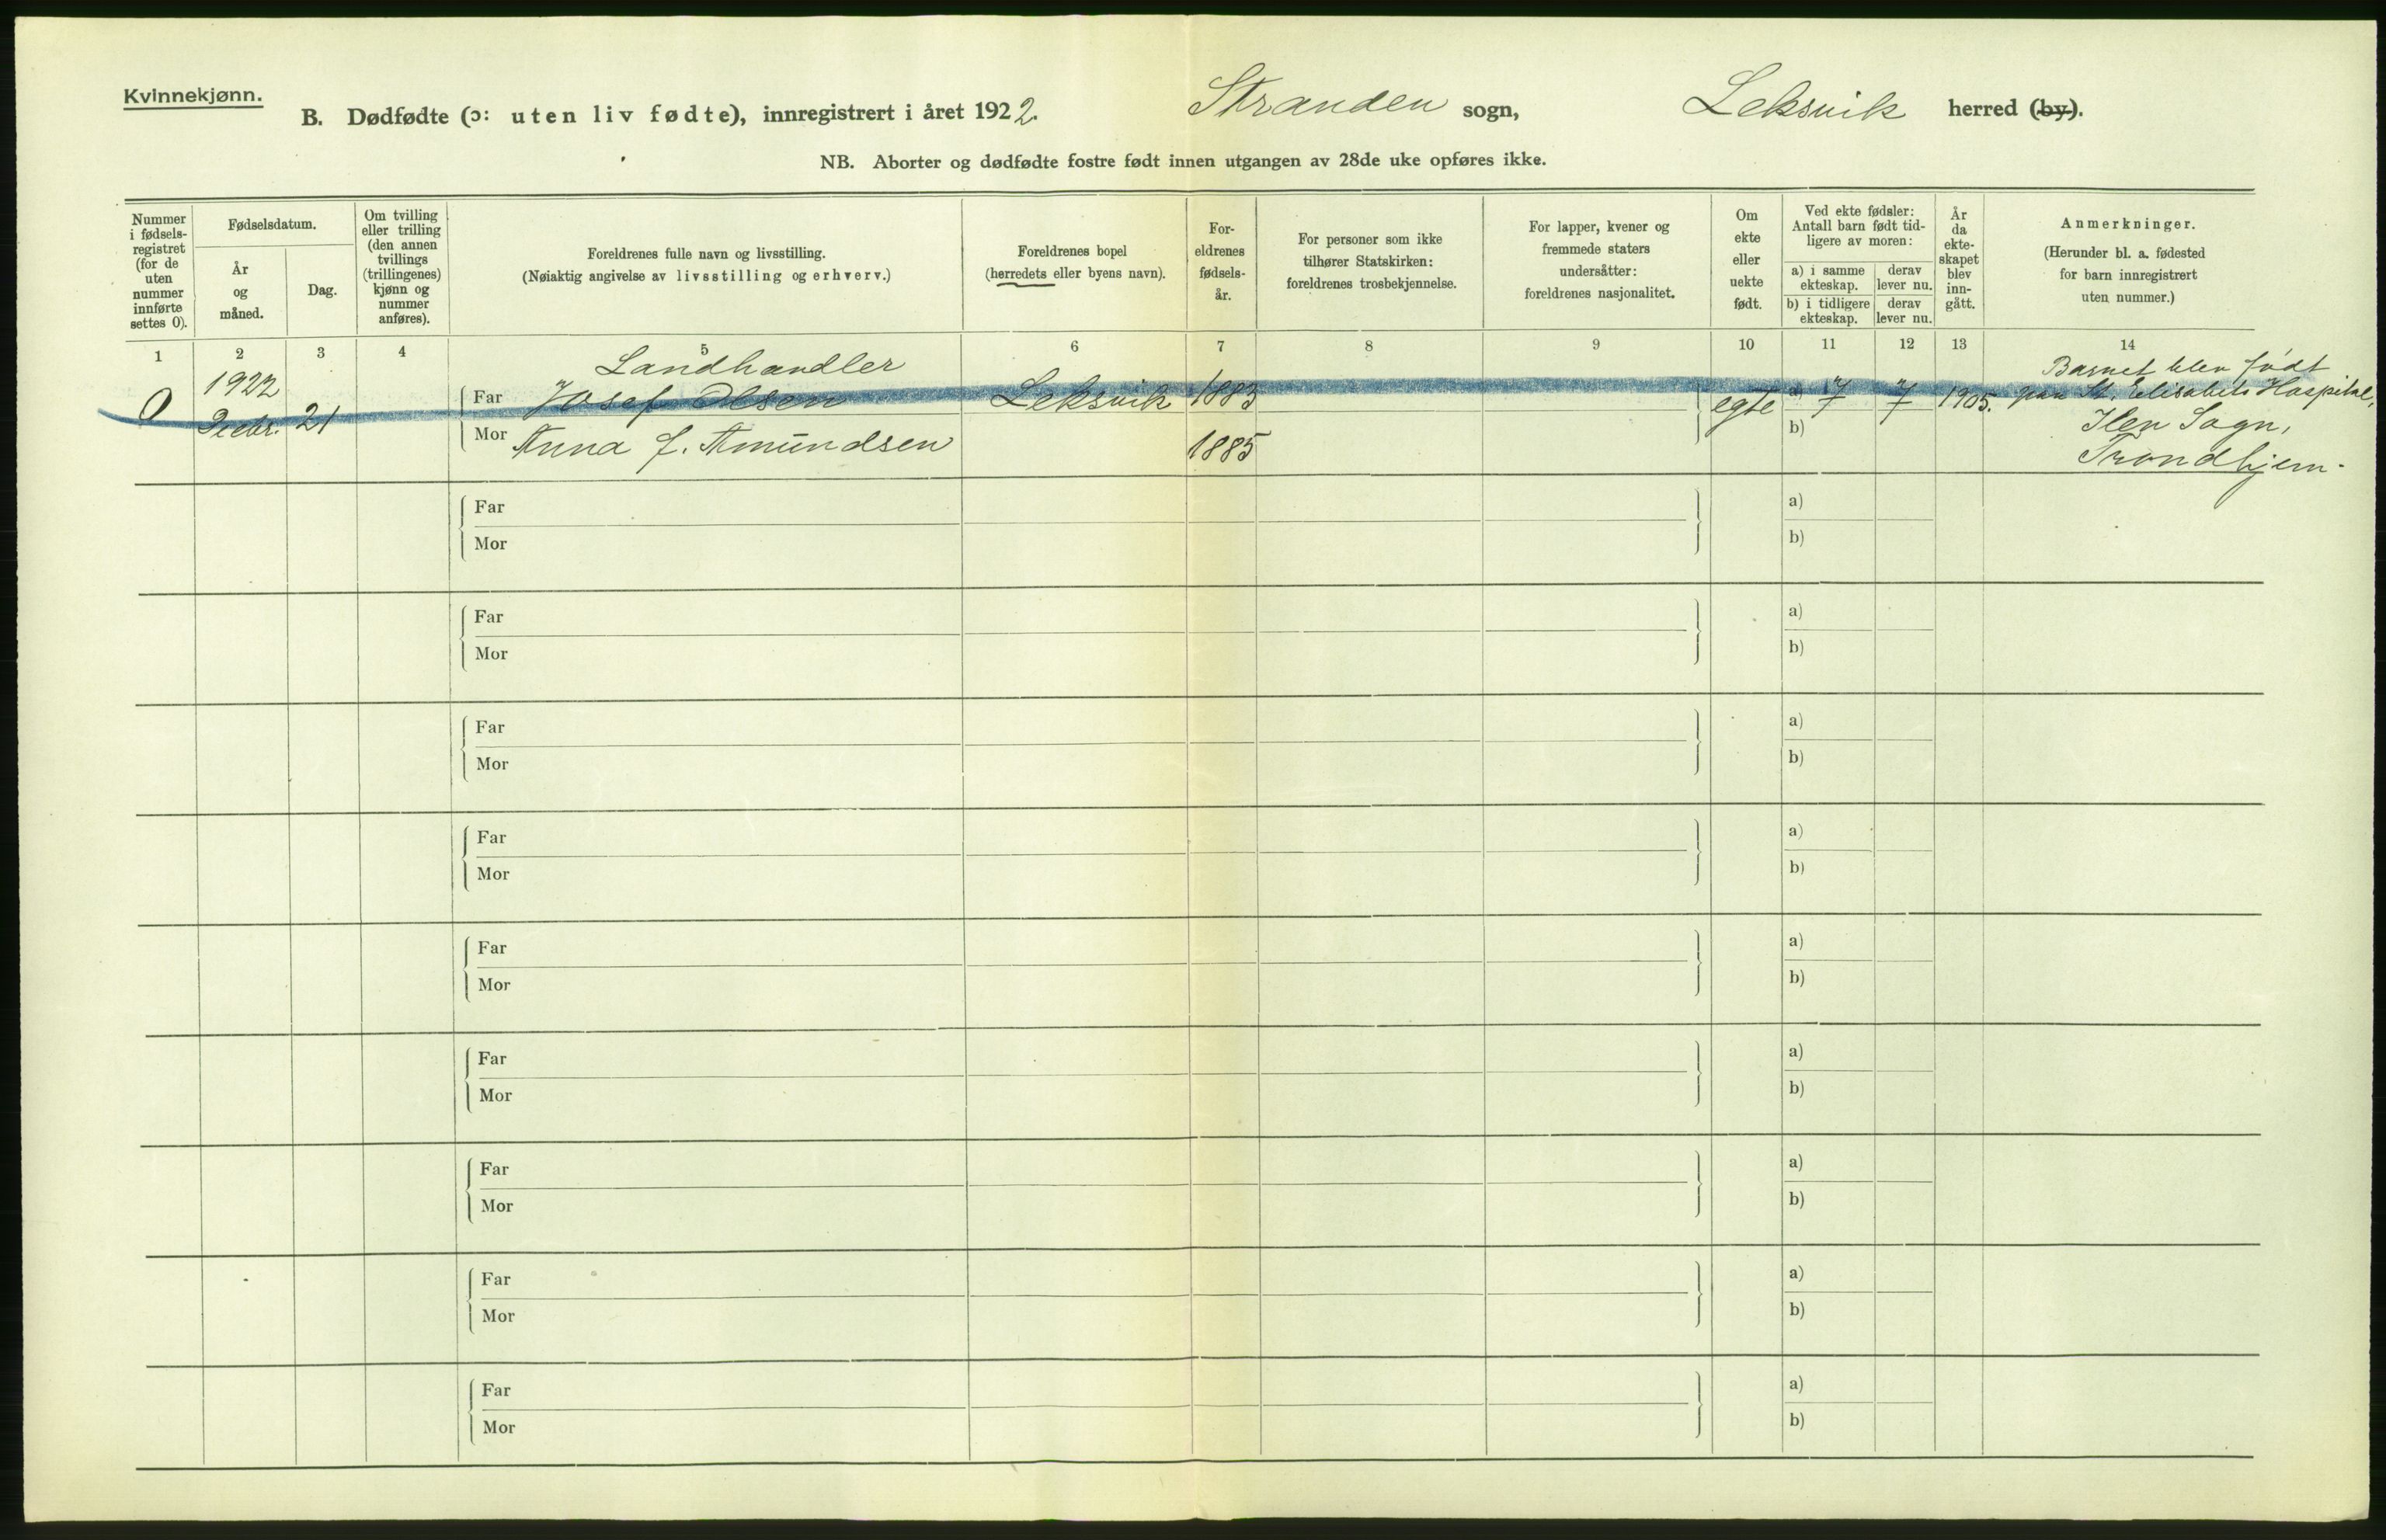 Kvinnekjønn.
B. Dødfødte (ɔ: uten liv fødte), innregistrert i året 1922. Stranden sogn, Leksvik herred (by).
NB. Aborter og dødfødte fostre født innen utgangen av 28de uke opføres ikke.
Nummer
i fødsels-
registret
(for de
uten
nummer
innførte
settes 0).
Fødselsdatum.
År
og
måned.
Dag.
Om tvilling
eller trilling
(den annen
tvillings
(trillingenes)
kjønn og
nummer
anføres).
Foreldrenes fulle navn og livsstilling.
(Nøiaktig angivelse av livsstilling og erhverv.)
Foreldrenes bopel
(herredets eller byens navn).
For-
eldrenes
fødsels-
år.
For personer som ikke
tilhører Statskirken:
foreldrenes trosbekjennelse.
For lapper, kvener og
fremmede staters
undersåtter:
foreldrenes nasjonalitet.
Om
ekte
eller
uekte
født.
Ved ekte fødsler:
Antall barn født tid-
ligere av moren:
a) i samme
ekteskap.
derav
lever nu.
b) i tidligere
ekteskap.
derav
lever nu.
År
da
ekte-
skapet
blev
inn-
gått.
Anmerkninger.
(Herunder bl. a. fødested
for barn innregistrert
uten nummer.)
1 2 3 4 5 6 7 8 9 10 11 12 13 14
0
1922
Decbr. 21
Landhandler
Far Josef Olsen Leksvik 1883
Mor Anna J. Amundsen 1885
egte
a) 7 7 1905.
b)
Barnet blev født
paa St. Elisabeths Hospital,
Ilen Sogn,
Trondhjem.
Far a)
Mor b)
Far a)
Mor b)
Far a)
Mor b)
Far a)
Mor b)
Far a)
Mor b)
Far a)
Mor b)
Far a)
Mor b)
Far a)
Mor b)
Far a)
Mor b)